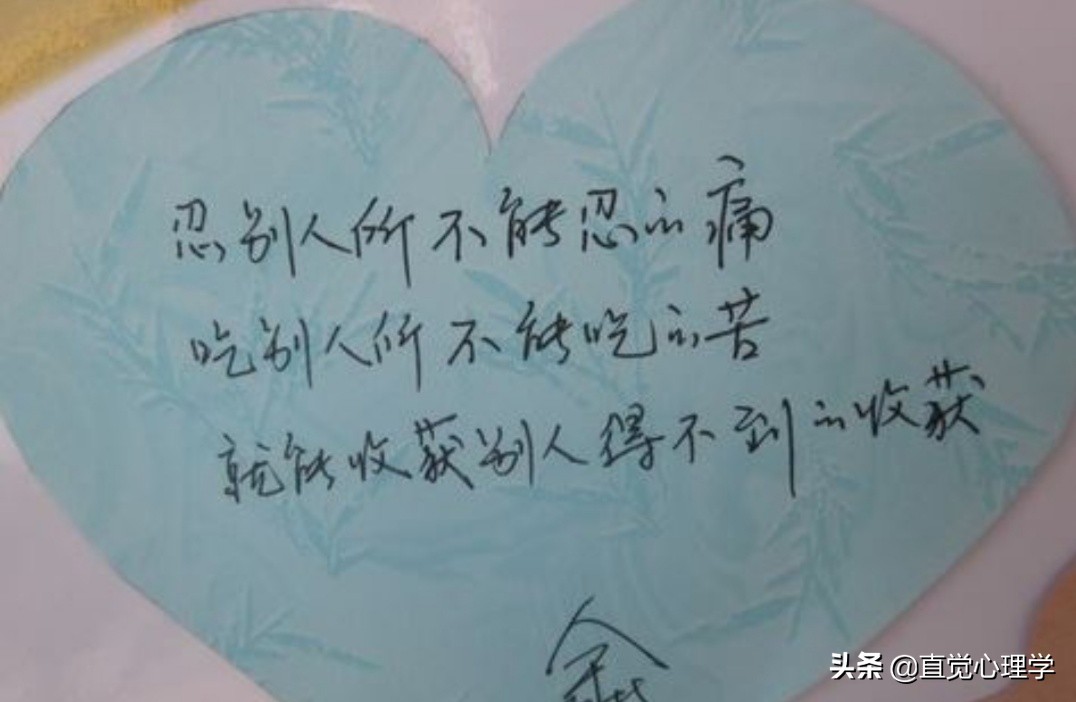 忍别人所不能忍的痛
吃别人所不能吃的苦
就能收获别人得不到的收获
头条 @直觉心理学